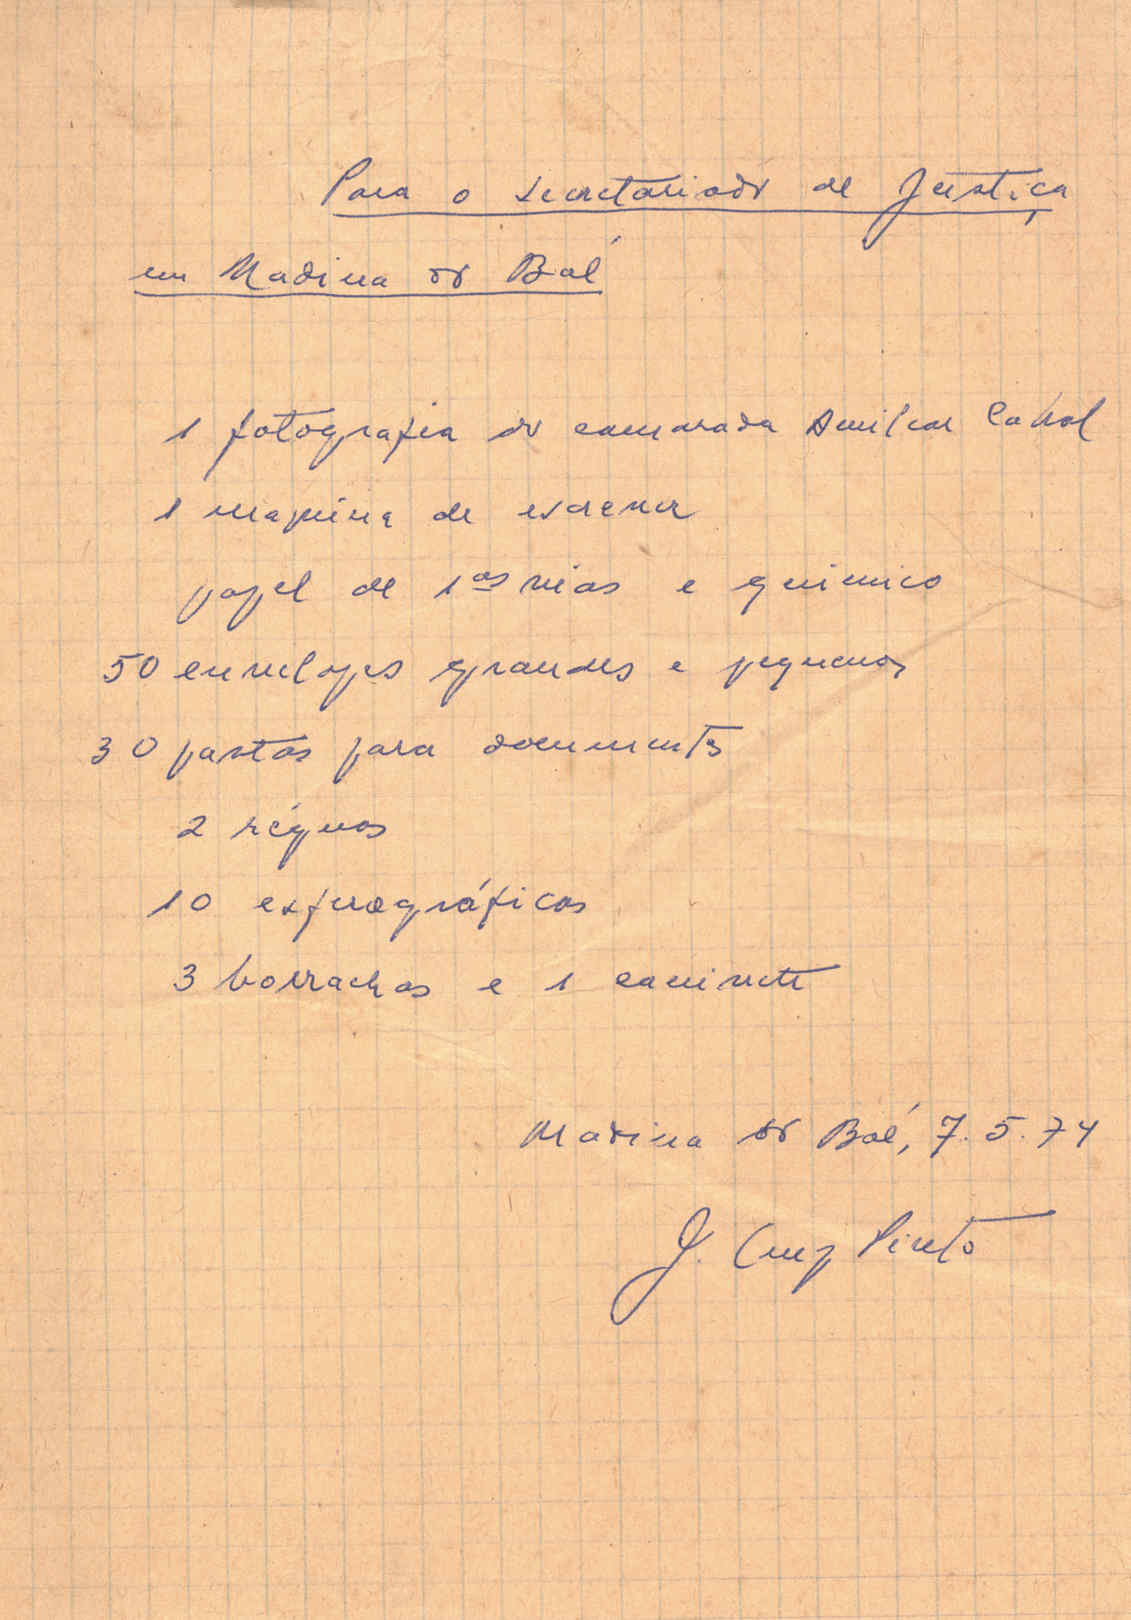 Para o secretariado de Justiça
em Madina do Boé
1 fotografia do camarada Amilcar Cabral
1 maquina de escrever
papel de 1as vias e quimico
50 envelopes grandes e pequenos
30 pastas para documentos
2 réguas
10 esferográficas
3 borrachas e 1 canivete
Madina do Boé, 7.5.74
J. Cruz Pinto